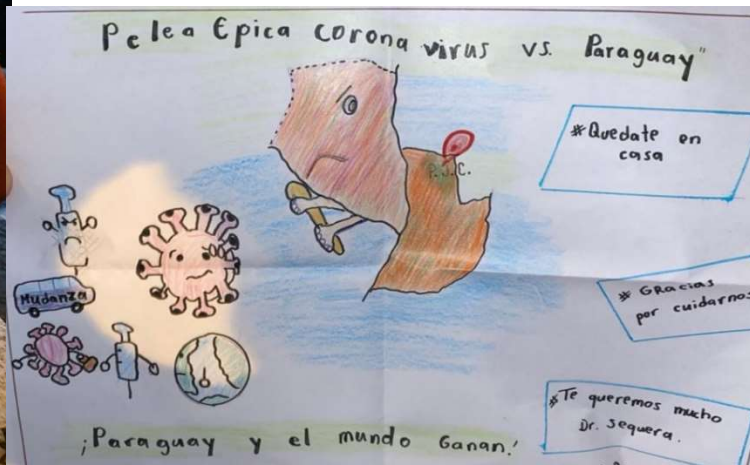 Pelea Epica corona virus vs. Paraguay"
#Quedate en
casa
P.J.C.
Mudanza
# GRacias
por cuidarnos
#Te queremos mucho
Dr. Sequera.
¡Paraguay y el mundo Ganan!